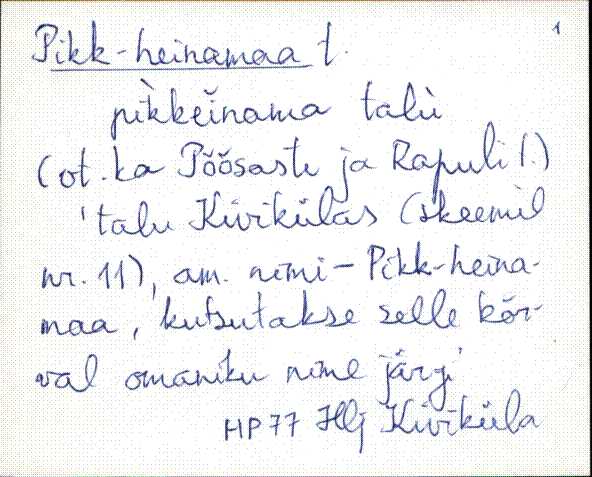 1
Pikk-heinamaa t.
pìkkeĭnama talù
(ot. ka Põõsaste ja Rapuli t.)
'talu Kivikülas (skeemil
nr. 11), am. nimi - Pikk-heina-
maa, kutsutakse selle kõr-
val omaniku nime järgi'
HP 77 Hlj Kiviküla